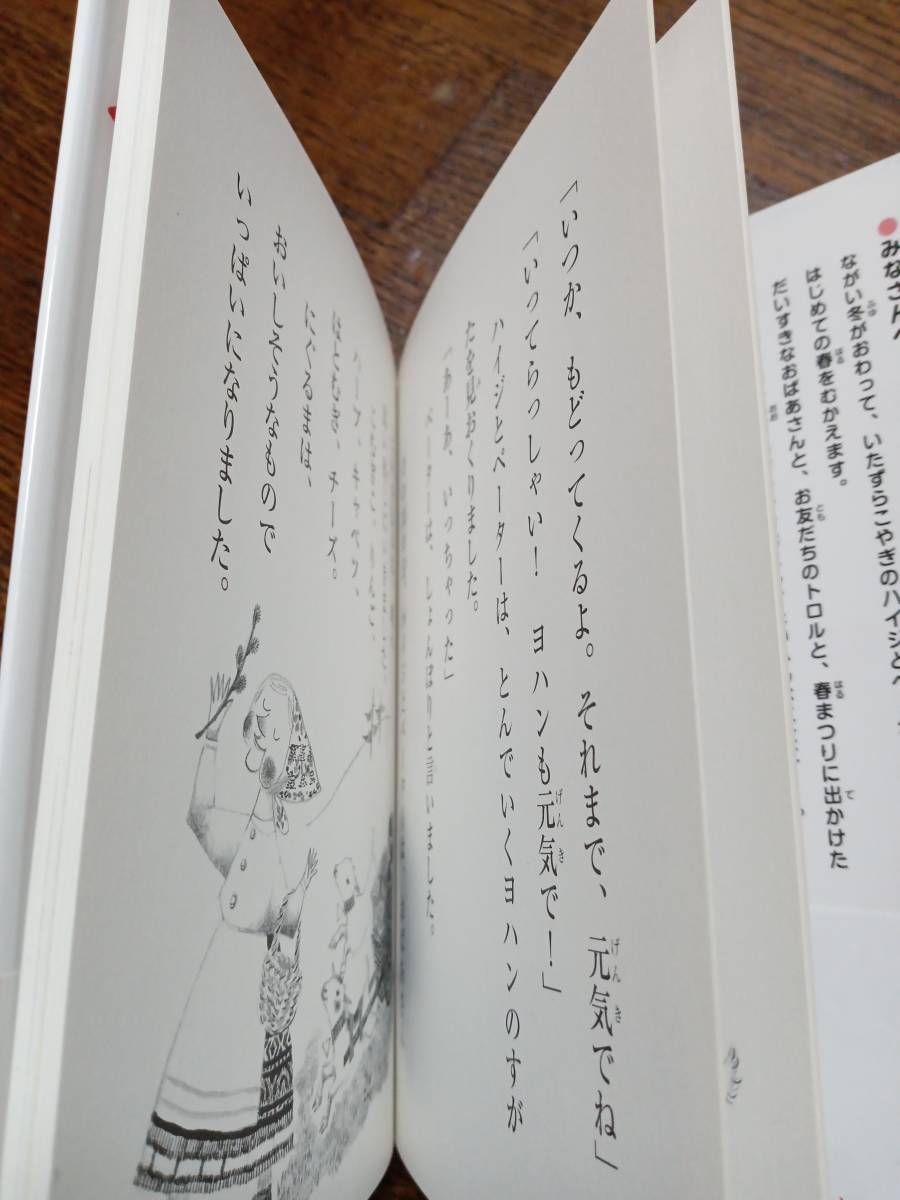 「いつか、もどってくるよ。それまで、元気でね」
「いってらっしゃい！　ヨハンも元気で！」
ハイジとペーターは、とんでいくヨハンのすが
たを見おくりました。
「あーあ、いっちゃった」
ペーターは、しょんぼりと言いました。
ハーブ、キャベツ、
はとむぎ、チーズ。
にぐるまは、
おいしそうなもので
いっぱいになりました。
みなさんへ
ながい冬がおわって、いたずらこやぎのハイジとペ
はじめての春をむかえます。
だいすきなおばあさんと、お友だちのトロルと、春まつりに出かけた